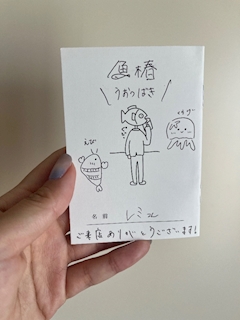 魚椿
うおつばき
えび
名前 レミエ
ご来店ありがとうございます!